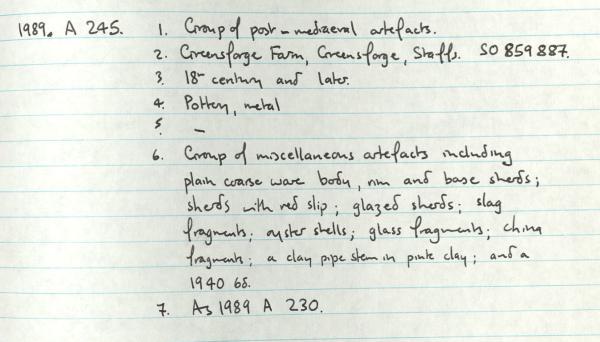 1989. A 245. 1. Group of post-mediaeval artefacts.
2. Greensforge Farm, Greensforge, Staffs. SO 859 887.
3. 18th century and later.
4. Pottery, metal
5. –
6. Group of miscellaneous artefacts including
plain coarse ware body, rim and base sherds;
sherds with red slip; glazed sherds; slag
fragments; oyster shells; glass fragments; china
fragments; a clay pipe stem in pink clay; and a
1940 6d.
7. As 1989 A 230.